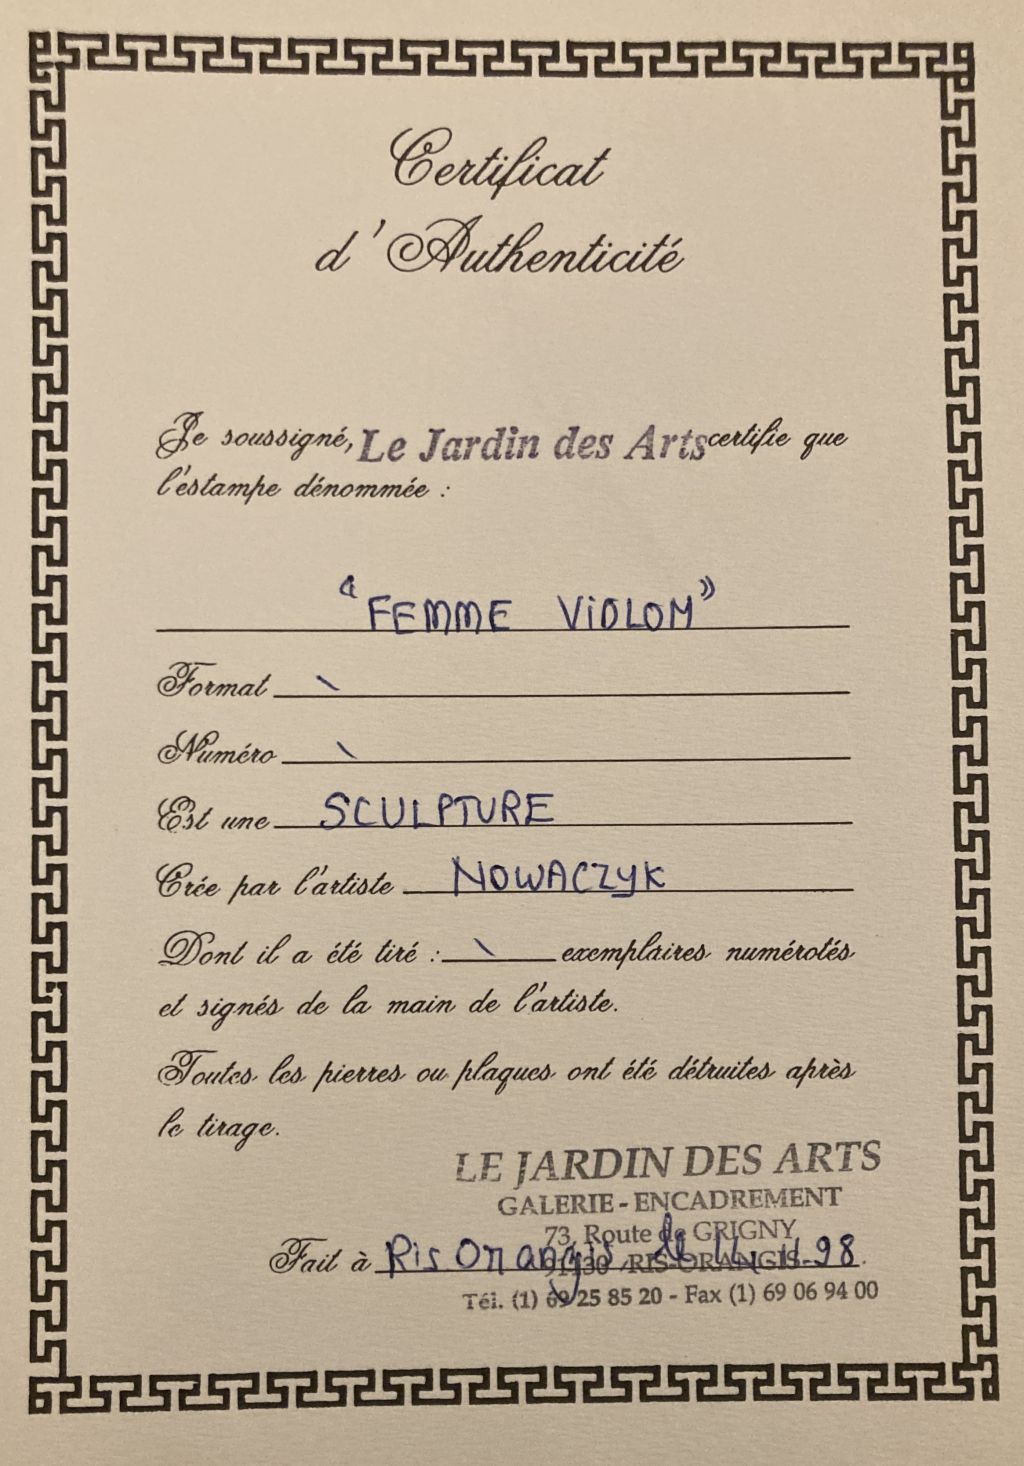 Certificat
d'Authenticité
Je soussigné, Le Jardin des Arts certifie que
l'estampe dénommée :
"FEMME ViOLOM"
Format
Numéro
Est une SCULPTURE
Crée par l'artiste NOWACZYK
Dont il a été tiré : exemplaires numérotés
et signés de la main de l'artiste.
Toutes les pierres ou plaques ont été détruites après
le tirage.
LE JARDIN DES ARTS
GALERIE - ENCADREMENT
73, Route de GRIGNY
Fait à Ris Orangis le 98
91130 RIS-ORANGIS
Tél. (1) 69 25 85 20 - Fax (1) 69 06 94 00